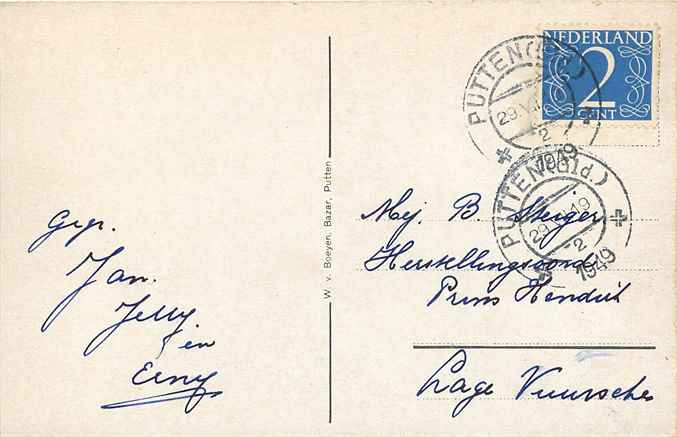 NEDERLAND
2
CENT
PUTTEN(Gld.)
29.VII
2
1949
PUTTEN(Gld.)
29. 19
2
1949
W. v. Boeyen, Bazar, Putten
Gegr.
Jan.
Jelly
en
Erny
Mej. B. Steiger
Herstellingsoord
Prins Hendrik
Lage Vuursche